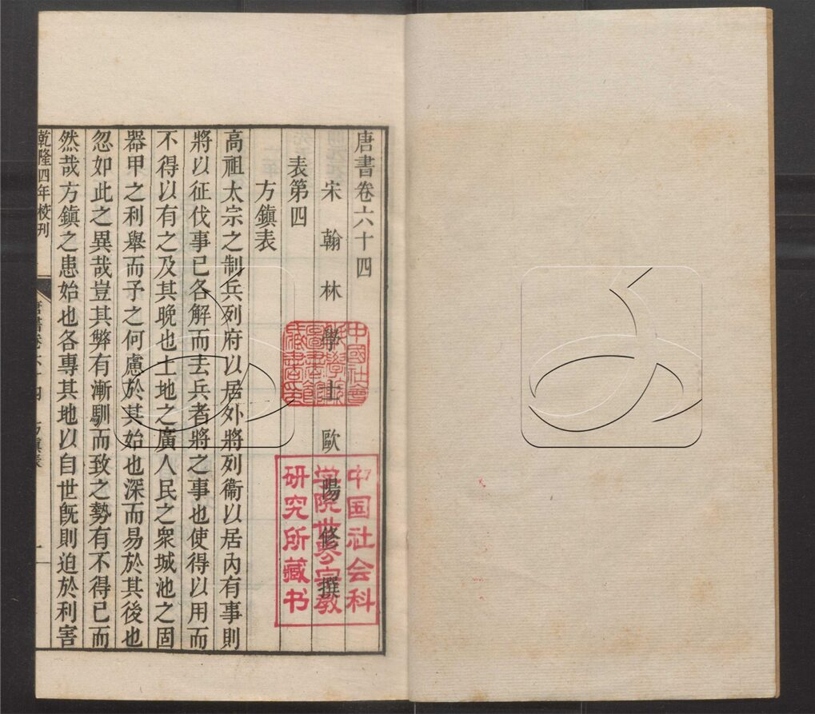 唐書卷六十四
宋翰林學士歐陽修撰
表第四
方鎮表
高祖太宗之制兵列府以居外將列衞以居內有事則
將以征伐事已各解而去兵者將之事也使得以用而
不得以有之及其晚也土地之廣人民之衆城池之固
器甲之利舉而予之何慮於其始也深而易於其後也
忽如此之異哉豈其弊有漸馴而致之勢有不得已而
然哉方鎮之患始也各專其地以自世旣則迫於利害
乾隆四年校刊
唐書卷六十四 方鎮表
一
中國社會
科學院
圖書館
藏書章
中国社会科
学院世界宗教
研究所藏书